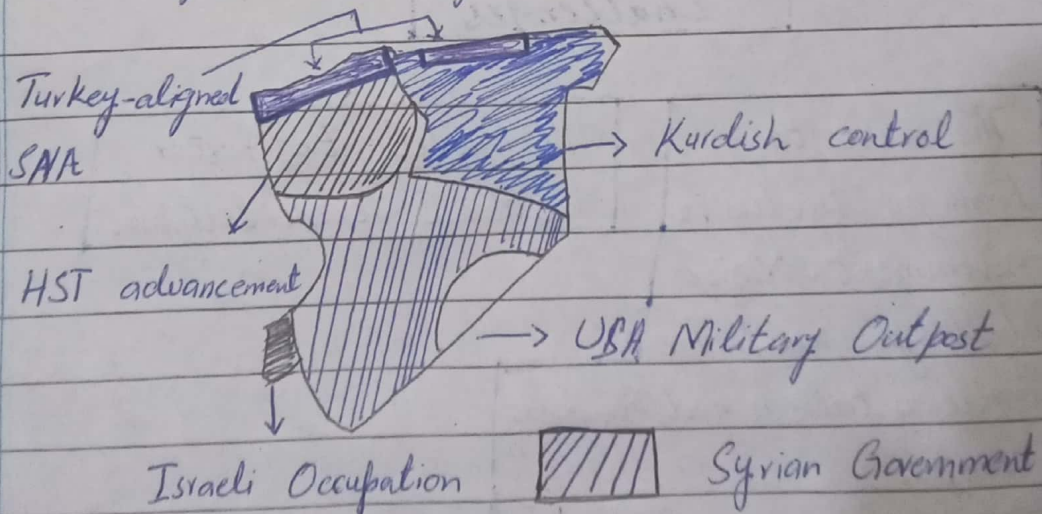 Turkey-aligned
SNA
Kurdish control
HST advancement
USA Military Outpost
Israeli Occupation
Syrian Government